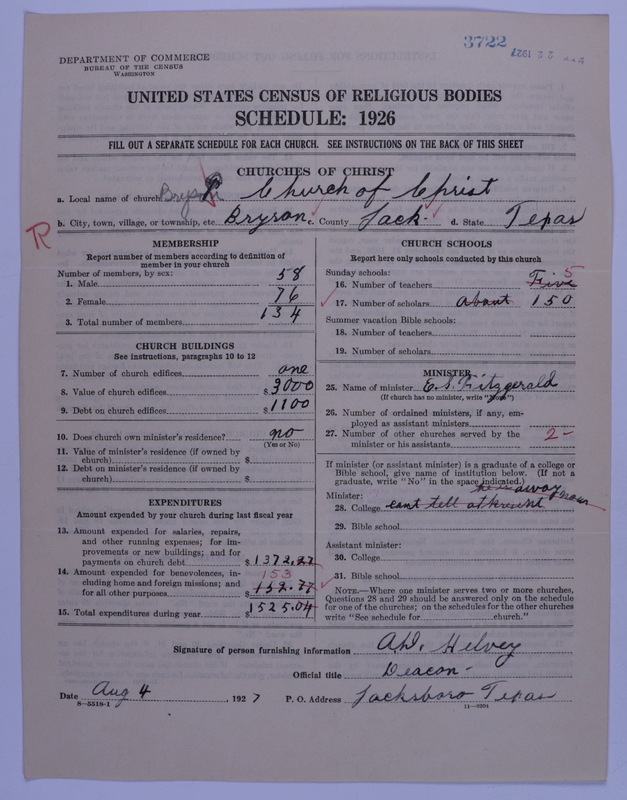 3722
1927
DEPARTMENT OF COMMERCE
BUREAU OF THE CENSUS
WASHINGTON
UNITED STATES CENSUS OF RELIGIOUS BODIES
SCHEDULE: 1926
FILL OUT A SEPARATE SCHEDULE FOR EACH CHURCH. SEE INSTRUCTIONS ON THE BACK OF THIS SHEET
CHURCHES OF CHRIST
a. Local name of church Bryson Church of Christ
b. City, town, village, or township, etc. Bryson c. County Jack d. State Texas
R
MEMBERSHIP
Report number of members according to definition of
member in your church
Number of members, by sex:
1. Male 58
2. Female 76
3. Total number of members 134
CHURCH BUILDINGS
See instructions, paragraphs 10 to 12
7. Number of church edifices one
8. Value of church edifices $ 3000
9. Debt on church edifices $ 1100
10. Does church own minister's residence? no
(Yes or No)
11. Value of minister's residence (if owned by
church) $
12. Debt on minister's residence (if owned by
church) $
EXPENDITURES
Amount expended by your church during last fiscal year
13. Amount expended for salaries, repairs,
and other running expenses; for im-
provements or new buildings; and for
payments on church debt $ 1372.27
14. Amount expended for benevolences, in-
cluding home and foreign missions; and
153
for all other purposes $ 152.77
15. Total expenditures during year $ 1525.04
CHURCH SCHOOLS
Report here only schools conducted by this church
Sunday schools:
16. Number of teachers Five 5
17. Number of scholars about 150
Summer vacation Bible schools:
18. Number of teachers
19. Number of scholars
MINISTER
25. Name of minister C. S. Fitzgerald
(If church has no minister, write "None")
26. Number of ordained ministers, if any, em-
ployed as assistant ministers
27. Number of other churches served by the
minister or his assistants 2-
If minister (or assistant minister) is a graduate of a college or
Bible school, give name of institution below. (If not a
graduate, write "No" in the space indicated.)
he is away now
Minister:
28. College cant tell at present
29. Bible school
Assistant minister:
30. College
31. Bible school
NOTE.—Where one minister serves two or more churches,
Questions 28 and 29 should be answered only on the schedule
for one of the churches; on the schedules for the other churches
write "See schedule for church."
Signature of person furnishing information Helvey
Official title Deacon
Date Aug 4, 1927 P. O. Address Jacksboro Texas
8—5518-1 11—9204